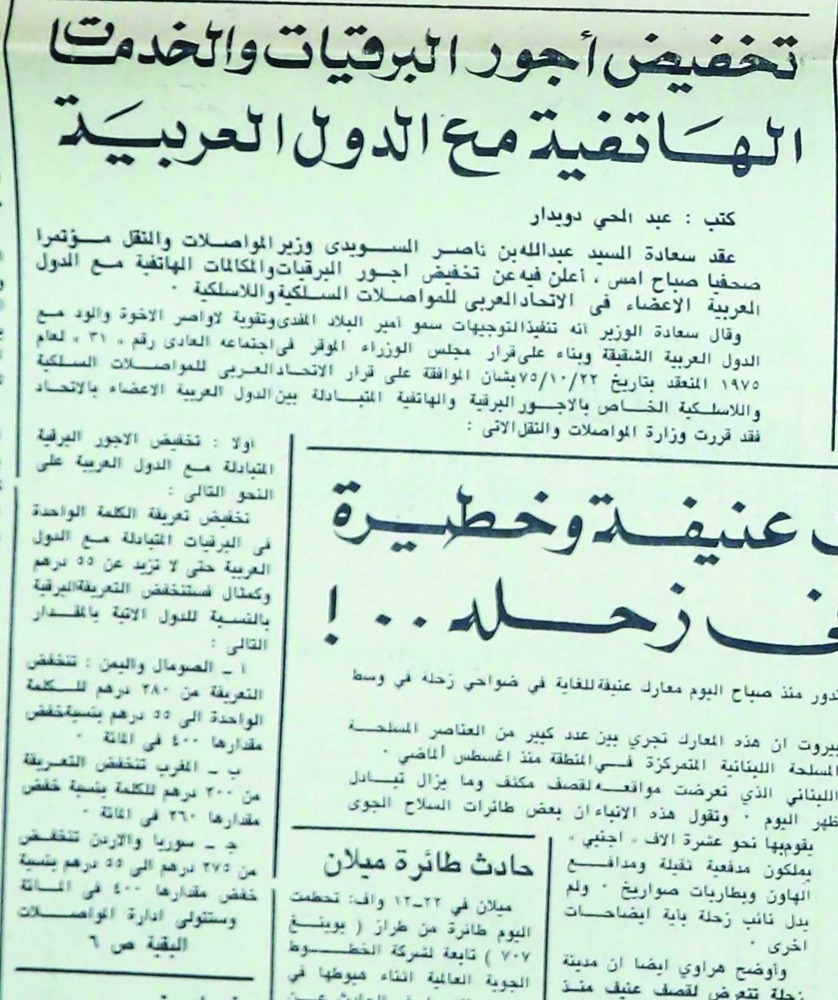 تخفيض أجور البرقيات والخدمات
الهاتفية مع الدول العربية
كتب : عبد الحي دويدار
عقد سعادة السيد عبدالله بن ناصر السويدى وزير المواصلات والنقل مؤتمرا
صحفيا صباح امس ، أعلن فيه عن تخفيض اجور البرقيات والمكالمات الهاتفية مع الدول
العربية الأعضاء فى الاتحاد العربى للمواصلات السلكية واللاسلكية ٠
وقال سعادة الوزير انه تنفيذا لتوجيهات سمو أمير البلاد المفدى وتقوية لاواصر الاخوة والود مع
الدول العربية الشقيقة وبناء على قرار مجلس الوزراء الموقر فى اجتماعه العادى رقم « ٣١ » لعام
١٩٧٥ المنعقد بتاريخ ٧٥/١٠/٢٢ بشان الموافقة على قرار الاتحاد العربى للمواصلات السلكية
واللاسلكية الخاص بالاجور البرقية والهاتفية المتبادلة بين الدول العربية الاعضاء بالاتحاد
فقد قررت وزارة المواصلات والنقل الاتى :
اولا : تخفيض الاجور البرقية
المتبادلة مع الدول العربية على
النحو التالى :
تخفيض تعريفة الكلمة الواحدة
فى البرقيات المتبادلة مع الدول
العربية حتى لا تزيد عن ٥٥ درهم
وكمثال فستنخفض التعريفة البرقية
بالنسبة للدول الاتية بالمقدار
التالى :
أ ـ الصومال واليمن : تنخفض
التعريفة من ٢٨٠ درهم للكلمة
الواحدة الى ٥٥ درهم بنسبة خفض
مقدارها ٤٠٠ فى المائة ٠
ب ـ المغرب تنخفض التعريفة
من ٢٠٠ درهم للكلمة بنسبة خفض
مقدارها ٢٦٠ فى المائة ٠
جـ ـ سوريا والاردن تنخفض
من ٢٧٥ درهم الى ٥٥ درهم بنسبة
خفض مقدارها ٤٠٠ فى المائة
وستتولى ادارة المواصلات
البقية ص ٦
عنيفة وخطيرة
زحله ٠٠ !
تدور منذ صباح اليوم معارك عنيفة للغاية في ضواحي زحلة في وسط
بيروت ان هذه المعارك تجري بين عدد كبير من العناصر المسلحة
المسلحة اللبنانية المتمركزة في المنطقة منذ اغسطس الماضي ٠
اللبناني الذي تعرضت مواقعه لقصف مكثف وما يزال تبادل
ظهر اليوم ٠ وتقول هذه الانباء ان بعض طائرات السلاح الجوى
يقوم بها نحو عشرة الاف « اجنبي »
يملكون مدفعية ثقيلة ومدافع
الهاون وبطاريات صواريخ ٠ ولم
يدل نائب زحلة باية ايضاحات
اخرى ٠
وأوضح هراوي ايضا ان مدينة
زحلة تتعرض لقصف عنيف منذ
حادث طائرة ميلان
ميلان في ٢٢ـ١٢ واف: تحطمت
اليوم طائرة من طراز ( بوينغ
٧٠٧ ) تابعة لشركة الخطوط
الجوية العالمية اثناء هبوطها في